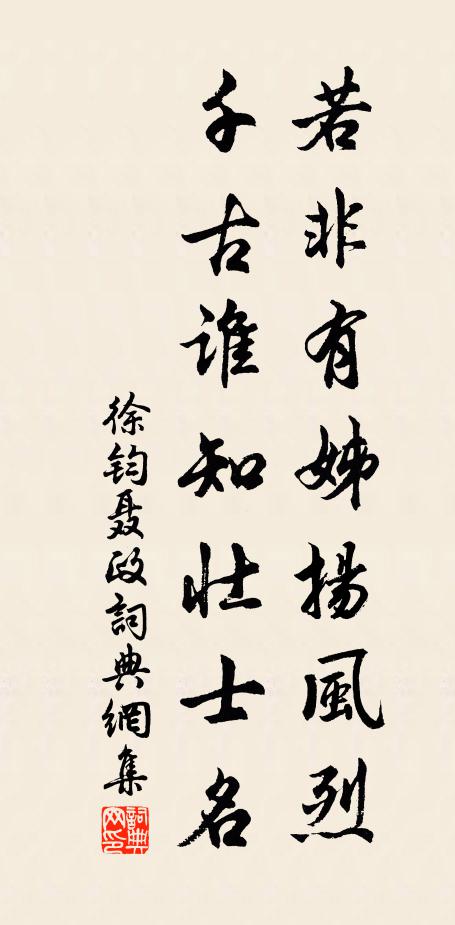 若非有姊揚風烈
千古誰知壯士名
徐鈞聶政詞典網集
詞典网印